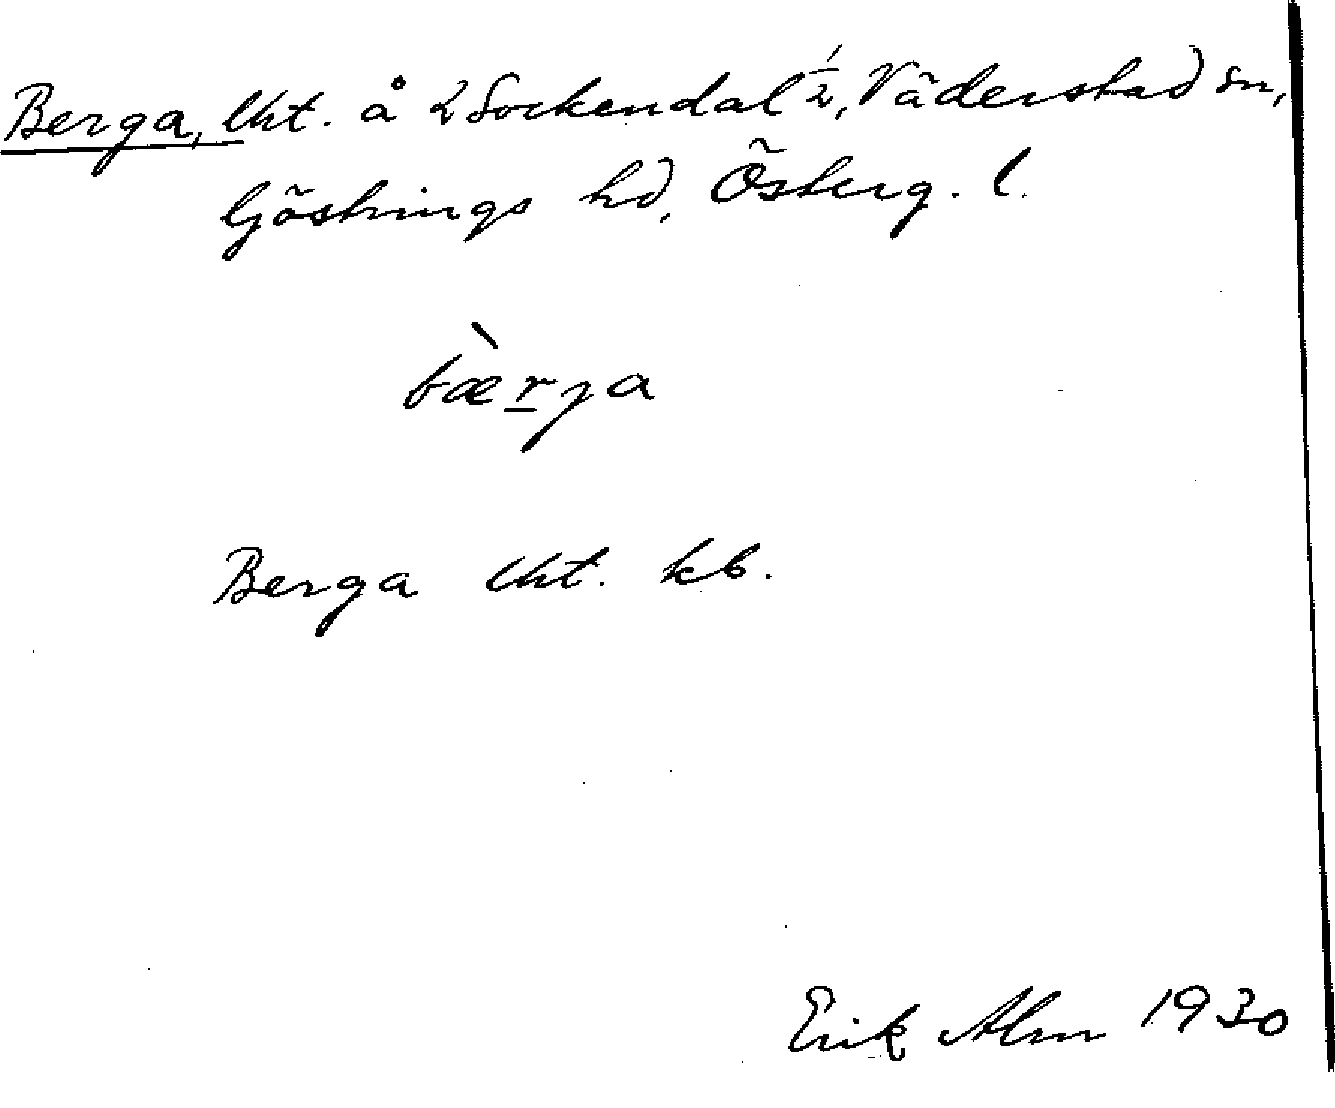 Berga, lht. å 2 Sockendal 1/2, Väderstad sn,
Göstrings hd, Österg. l.
bæ̀rja
Berga lht. kb.
Erik Alm 1930